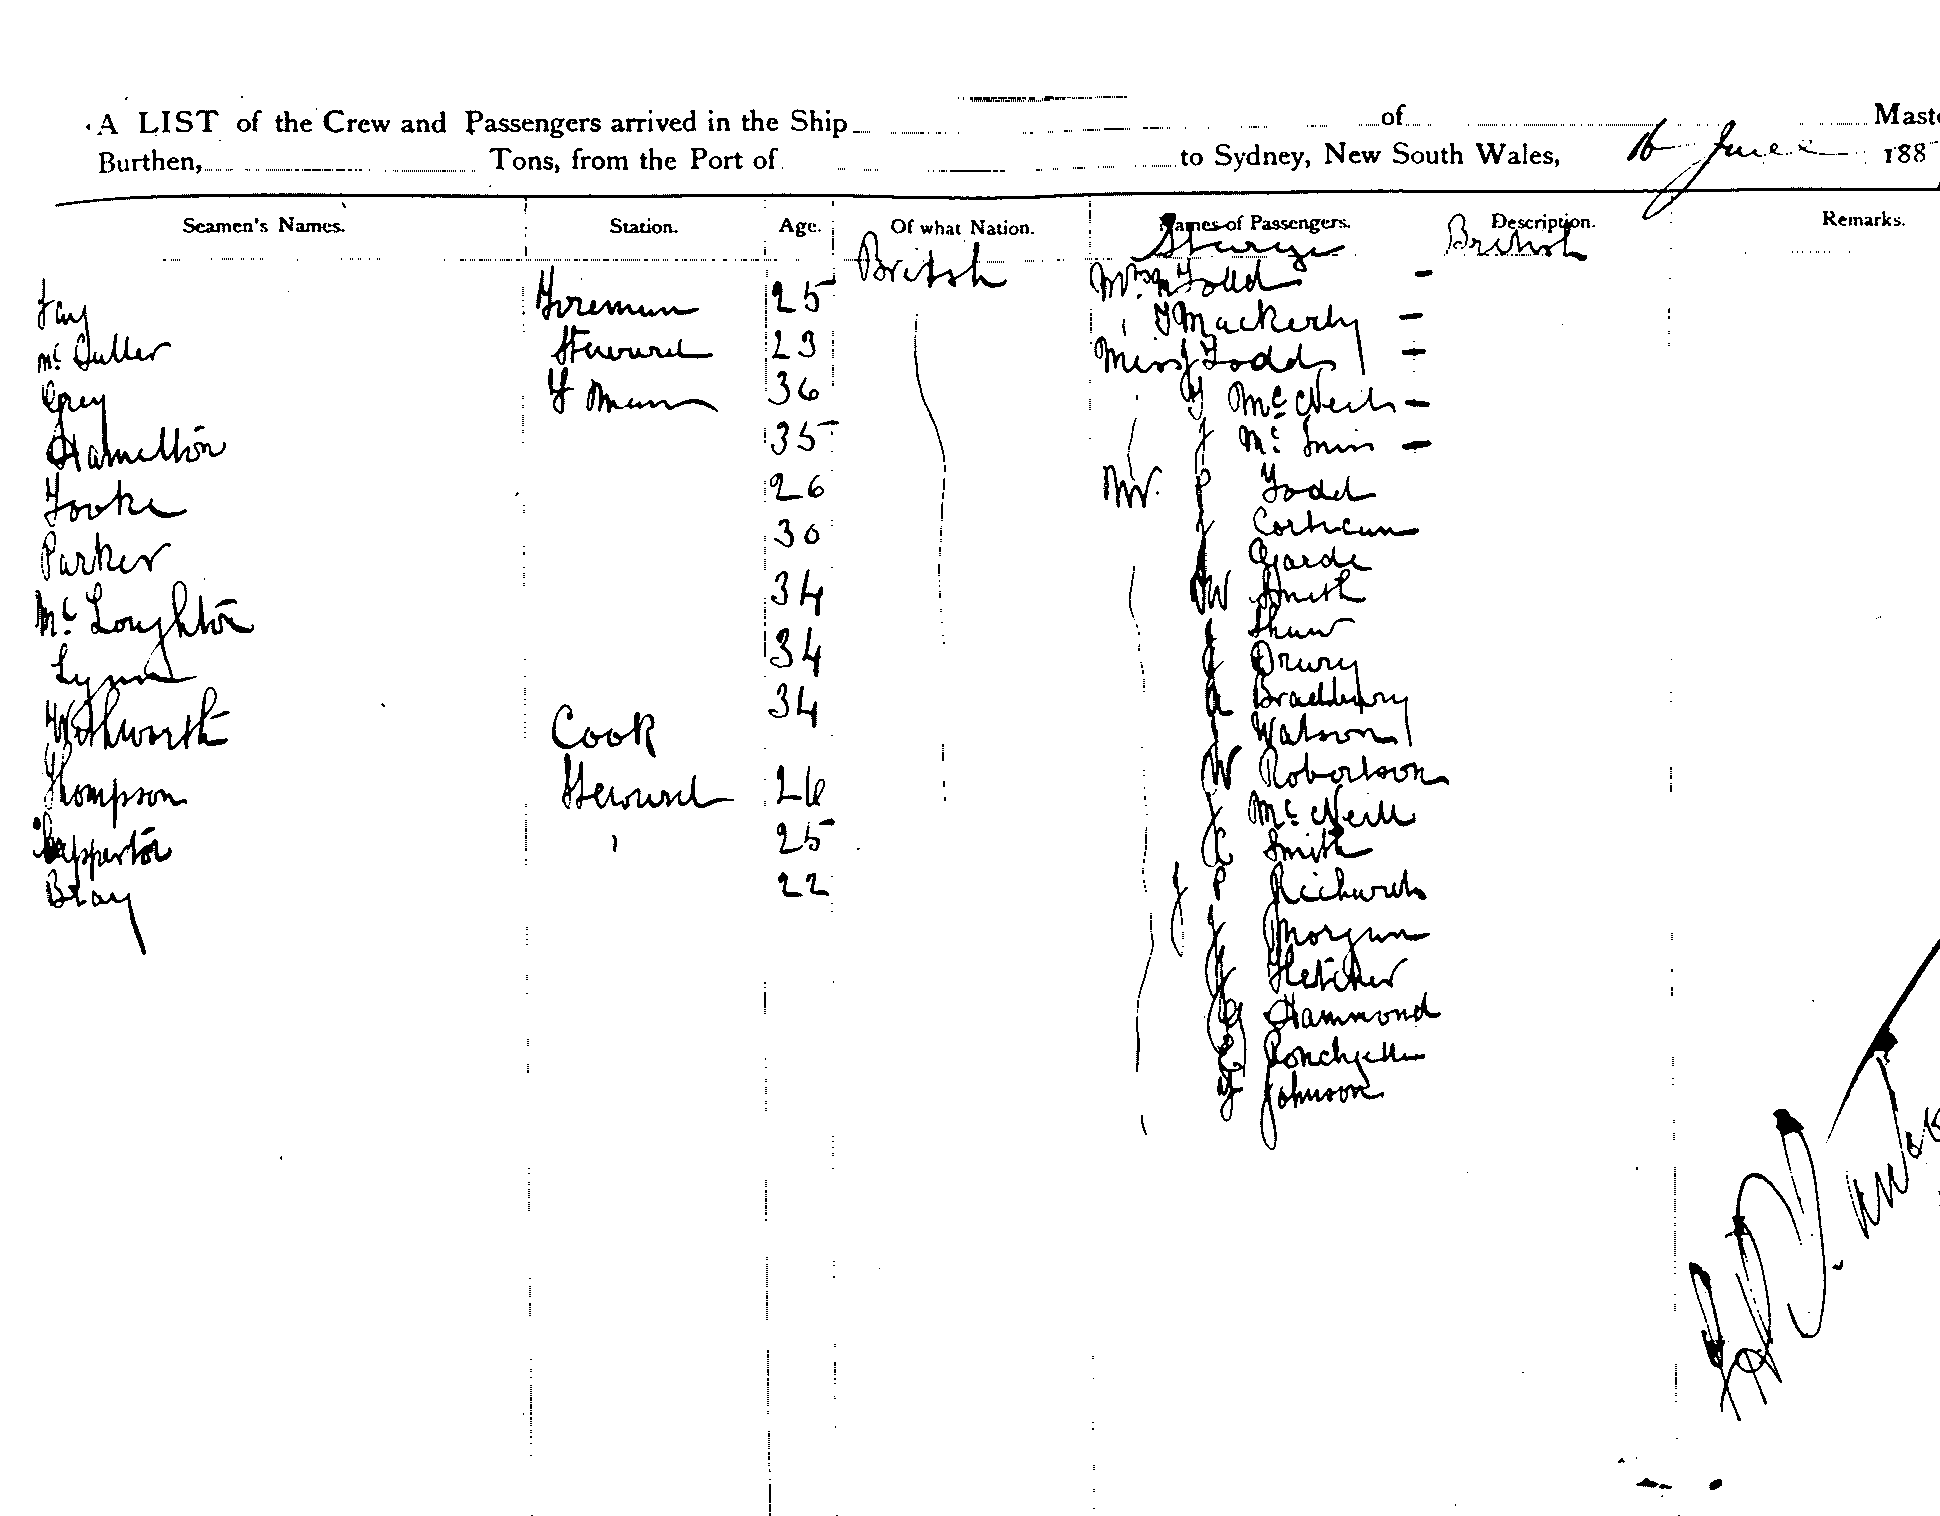 A LIST of the Crew and Passengers arrived in the Ship of Maste
Burthen, Tons, from the Port of to Sydney, New South Wales, 16 June 188
Seamen's Names. Station. Age. Of what Nation. Names of Passengers. Description. Remarks.
British Sturge British
Fay Fireman 25 Mrs Todd -
Mc Culler Steward 23 Mackerly -
Grey F man 36 Miss J Todd -
Hamelton 35 Mc Neil -
Tooke 26 J Mc Innis -
Parker 30 Mr. P Todd
Mc Loughton 34 J Corthcum
Lynn 34 Garde
Cook 34 W Smith
Thompson Steward 26 J Shaw
Clapperton 25 J Drury
Bray 22 A Bradbury
J Watson
W Robertson
J Mc Neill
C Smith
J P Richards
J Morgan
J Fletcher
G Hammond
Johnson